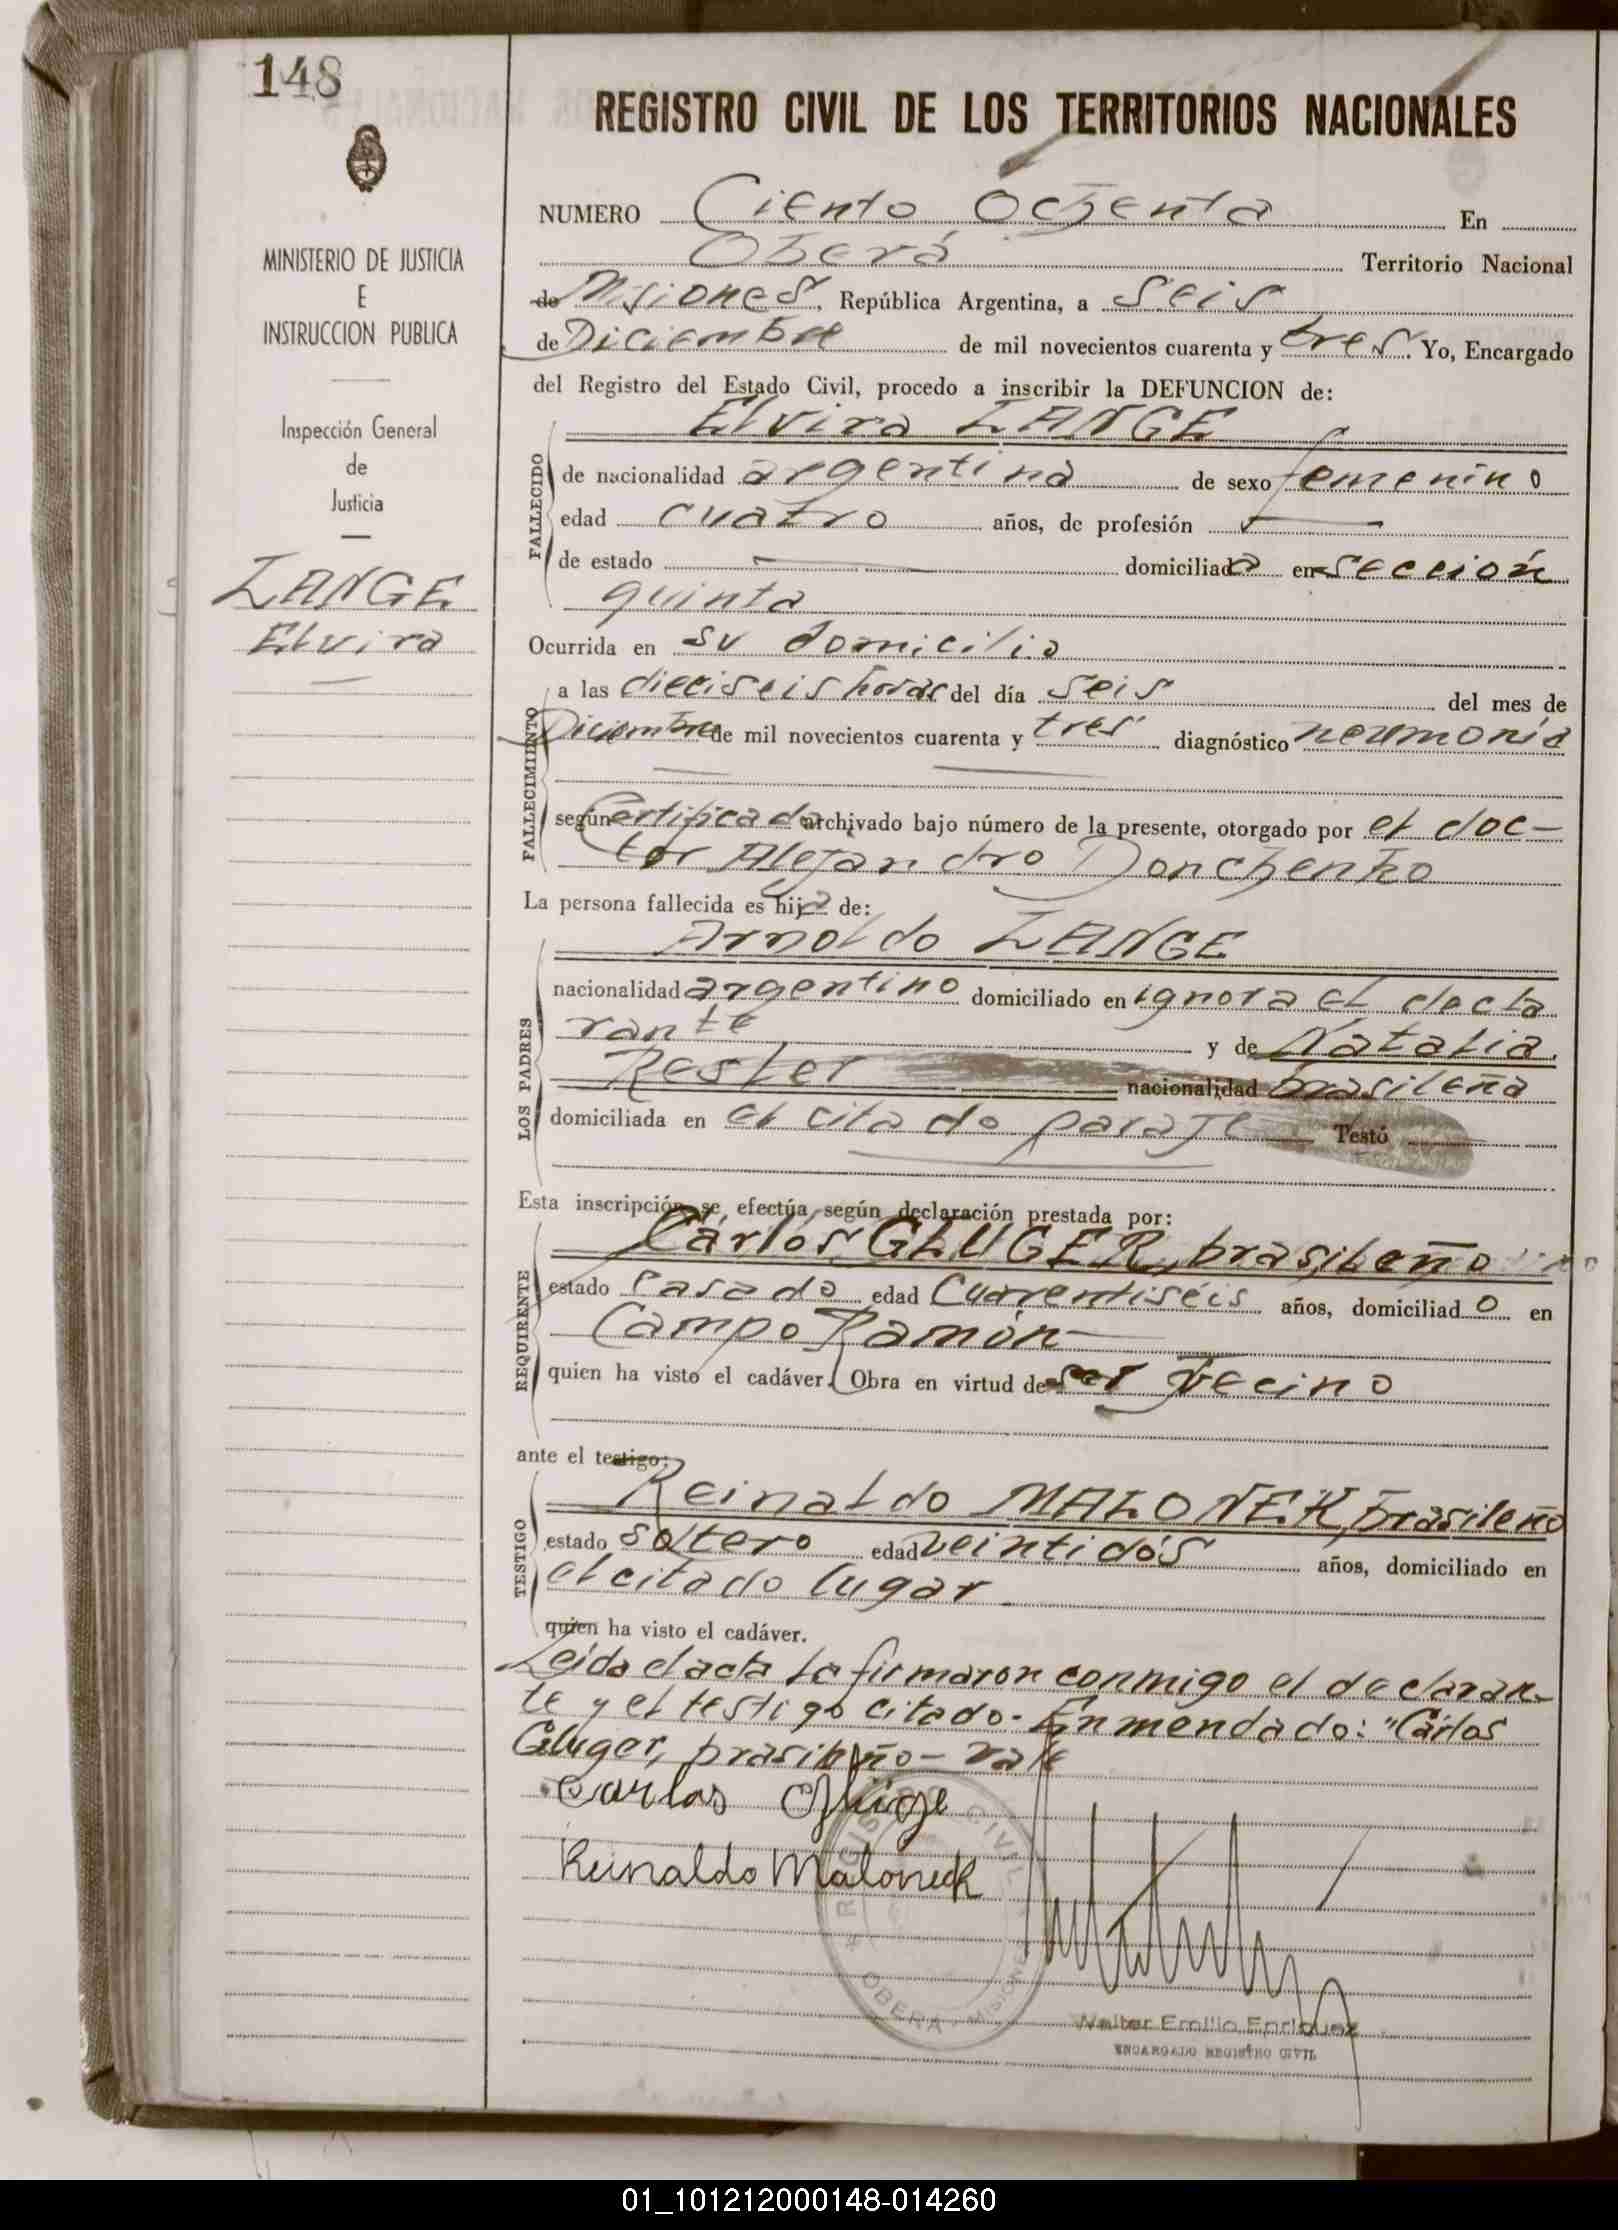 148
REGISTRO CIVIL DE LOS TERRITORIOS NACIONALES
MINISTERIO DE JUSTICIA
E
INSTRUCCION PUBLICA
Inspección General
de
Justicia
LANGE
Elvira
NUMERO Ciento Ochenta En
Oberá Territorio Nacional
de Misiones, República Argentina, a seis
de Diciembre de mil novecientos cuarenta y tres. Yo, Encargado
del Registro del Estado Civil, procedo a inscribir la DEFUNCION de:
Elvira LANGE
FALLECIDO
de nacionalidad argentina de sexo femenino
edad cuatro años, de profesión —
de estado — domiciliada en sección
quinta
Ocurrida en su domicilio
FALLECIMIENTO
a las dieciseis horas del día seis del mes de
Diciembre de mil novecientos cuarenta y tres diagnóstico neumonia
según Certificado archivado bajo número de la presente, otorgado por el doc-
tor Alejandro Donchenko
La persona fallecida es hija de:
LOS PADRES
Arnoldo LANGE
nacionalidad argentino domiciliado en ignora el decla
rante y de Natalia
Resler nacionalidad brasileña
domiciliada en el citado paraje — Testó —
Esta inscripción se efectúa según declaración prestada por:
REQUIRENTE
Carlos GLUGER, brasileño
estado casado edad Cuarentiséis años, domiciliado en
Campo Ramón
quien ha visto el cadáver. Obra en virtud de ser vecino
ante el testigo:
TESTIGO
Reinaldo MALONEK, brasileño
estado soltero edad veintidós años, domiciliado en
el citado lugar
quien ha visto el cadáver.
Leída el acta la firmaron conmigo el declaran-
te y el testigo citado. Enmendado: "Carlos
Gluger, brasileño - vale
Carlos Glüge
Reinaldo Maloneck
REGISTRO CIVIL
OBERA - MISIONES
Walter Emilio Enriquez
ENCARGADO REGISTRO CIVIL
01_101212000148-014260